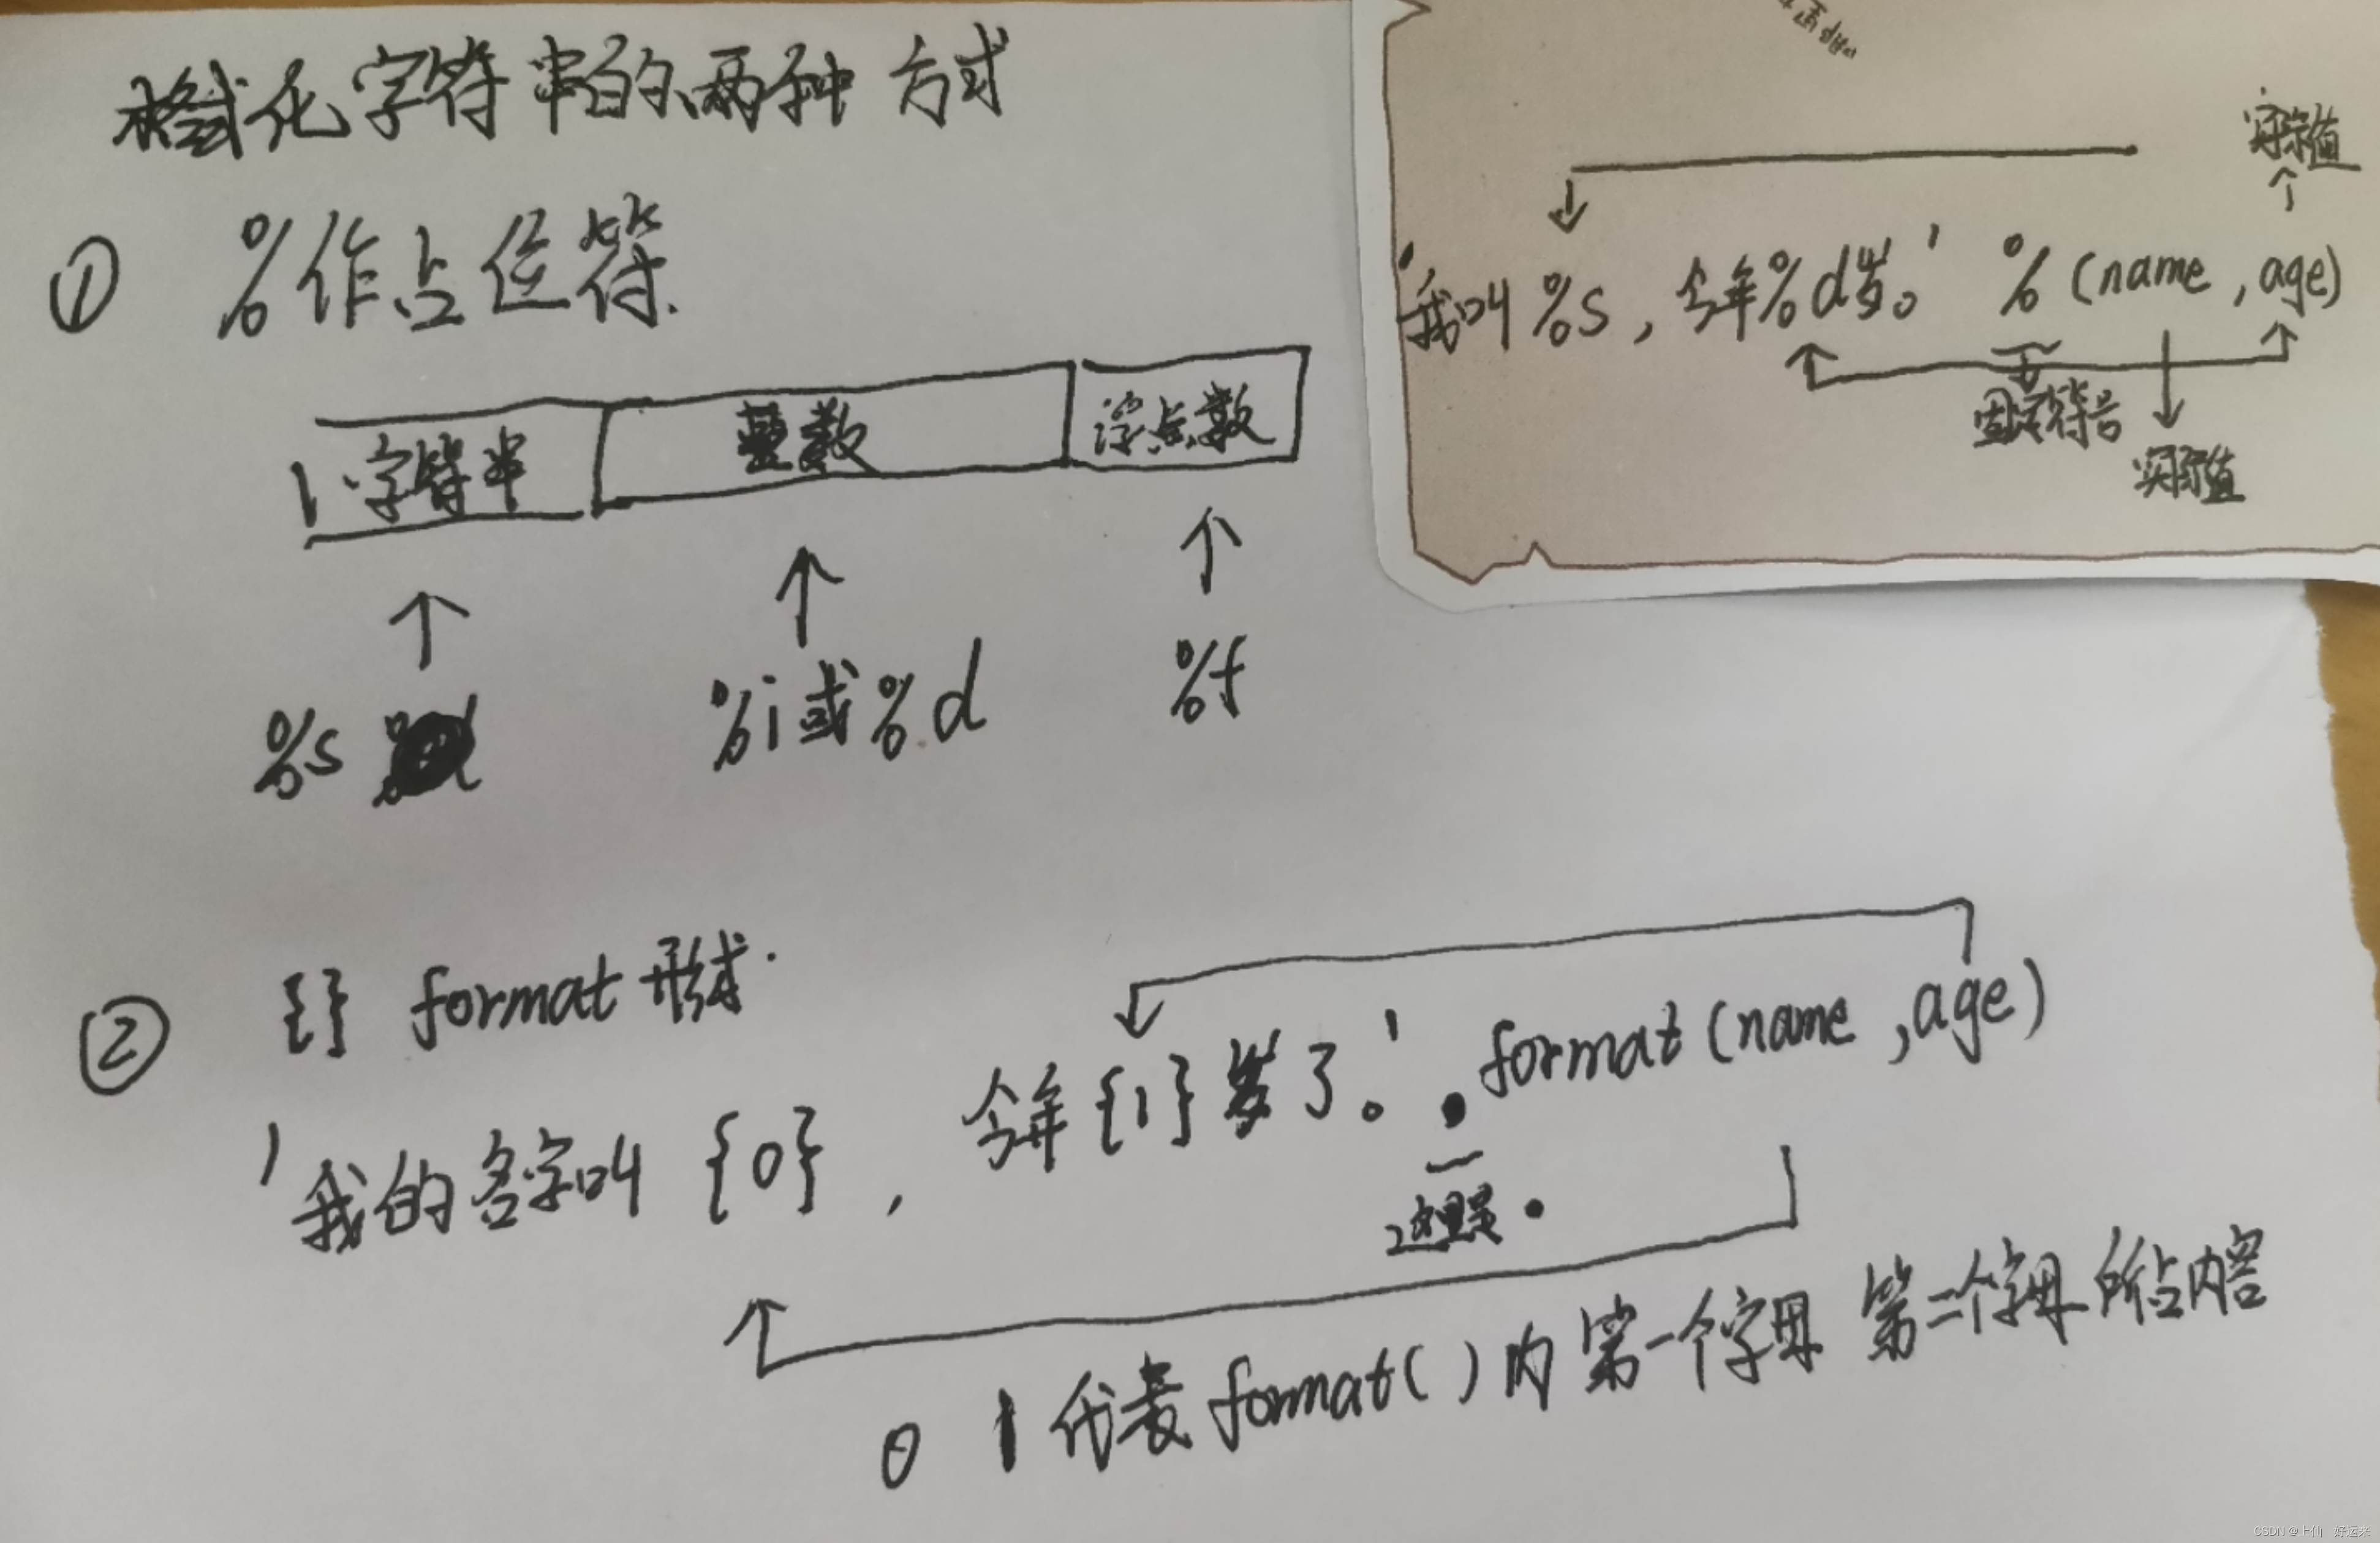 格式化字符串的两种方式
① %作占位符.
字符串 整数 浮点数
%s %i或%d %f
实际值
'我叫%s,今年%d岁。' % (name,age)
固定符号
实际值
② {} format形式.
'我的名字叫{0},今年{1}岁了。'.format(name,age)
这里是.
0 1代表format()内第一个字母 第二个字母所占内容
CSDN @上仙 好运来